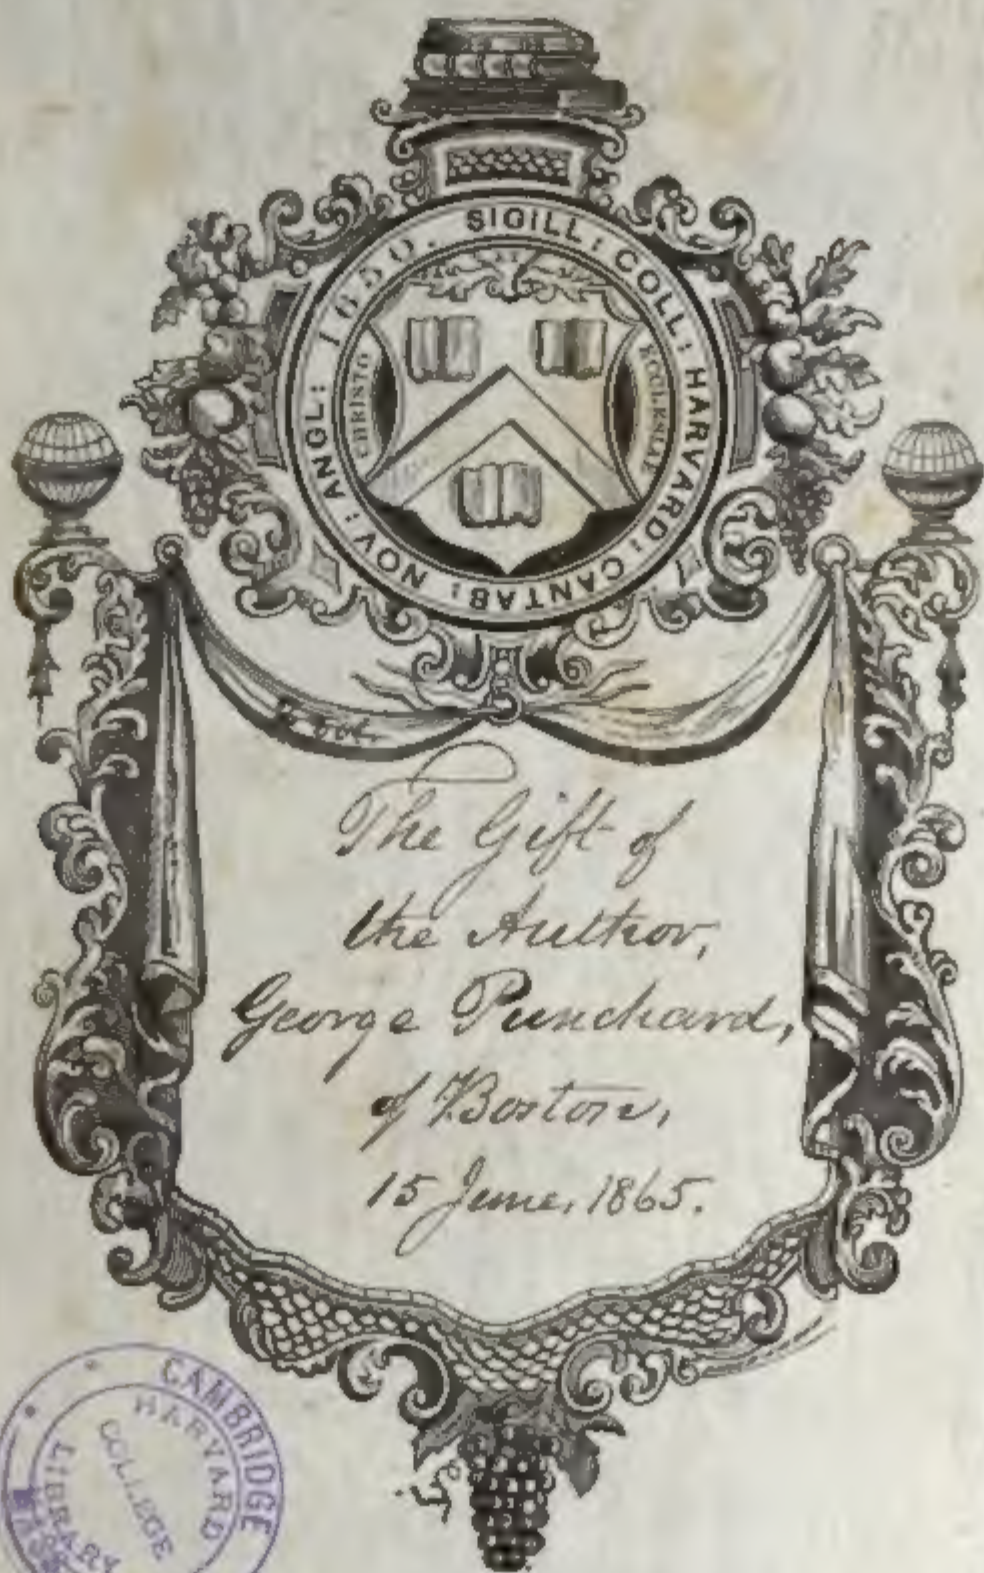 SIGILL: COLL: HARVARD: CANTAB: NOV: ANGL: 1650.
CHRISTO
ECCLESIAE
2 vol.
The Gift of
the Author,
George Punchard,
of Boston,
15 June, 1865.
CAMBRIDGE
HARVARD
COLLEGE
LIBRARY